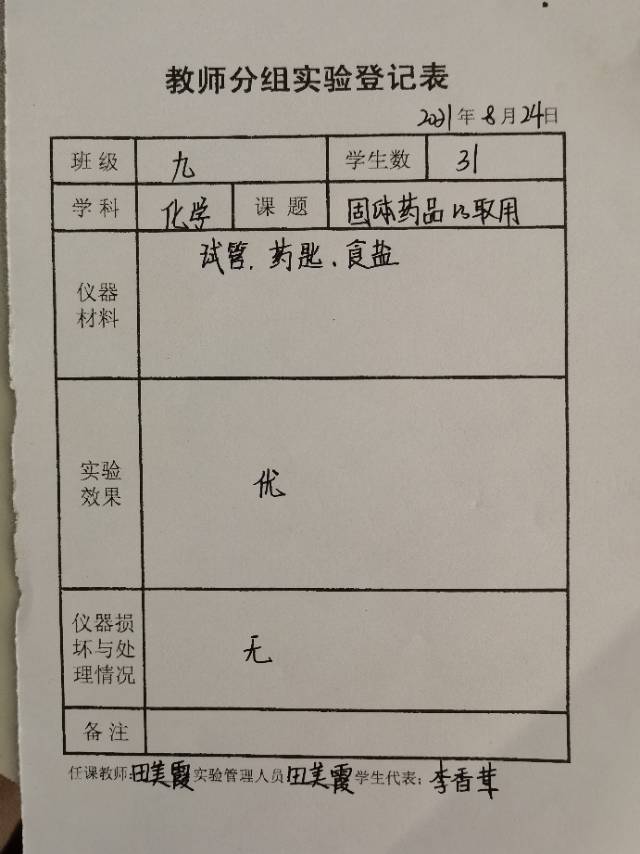 教师分组实验登记表
2021年8月24日
班级 九 学生数 31
学科 化学 课题 固体药品的取用
仪器材料 试管、药匙、食盐
实验效果 优
仪器损坏与处理情况 无
备注
任课教师:田美霞 实验管理人员 田美霞 学生代表:李香